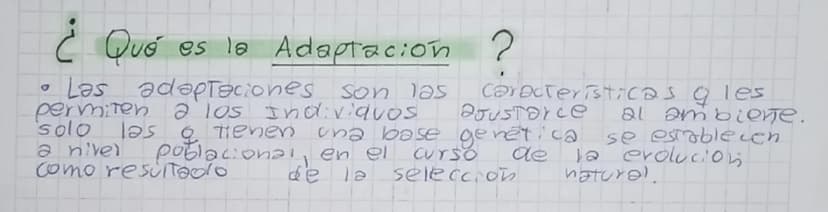 ¿ Qué es la Adaptación ?
• Las adaptaciones son las características q les
permiten a los individuos ajustarce al ambiente.
solo las q tienen una base genética se establecen
a nivel poblacional, en el curso de la evolución
como resultado de la selección natural.